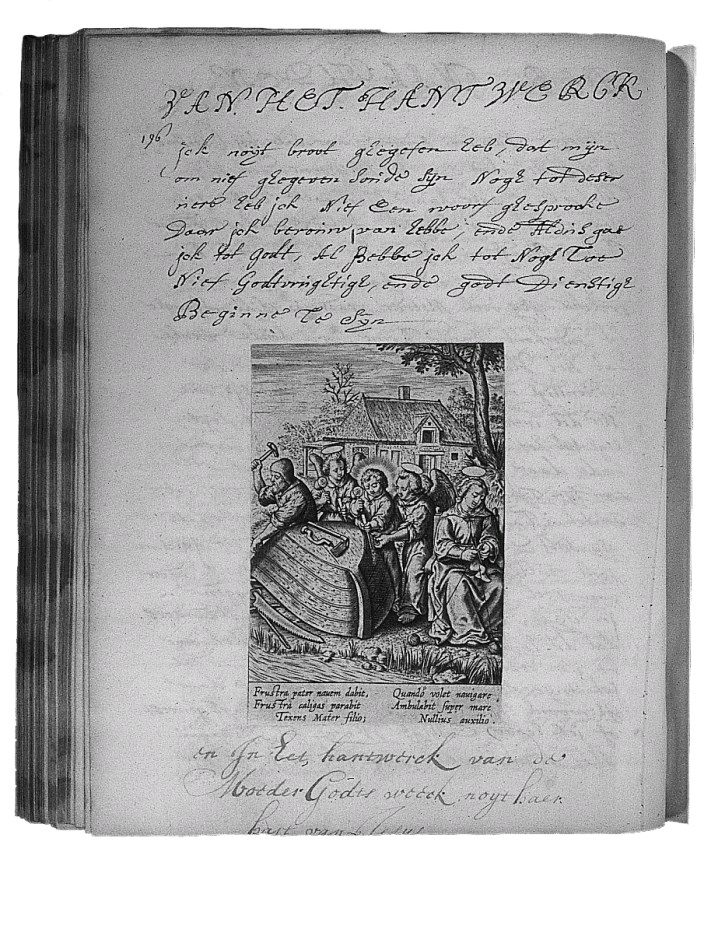 VAN. HET. HANTWERCK
196
jck noÿt broot ghegeten heb, dat mÿn
om niet ghegeven soude sÿn Nogh tot deser
uere heb jck Niet Een woort ghesprooke
Daar jck berouw van hebbe, ende Aldus gae
jck tot godt, Al Hebbe jck tot Nogh Toe
Niet Godtvrughtigh, ende godt Dienstigh
Beginne Te Sÿn
Frustra pater nauem dabit,
Frustra caligas parabit
Texens Mater filio;
Quando volet nauigare,
Ambulabit super mare
Nullius auxilio.
en In het, hantwerck van de
Moeder Godts weeck noyt haer
hart van Jesus